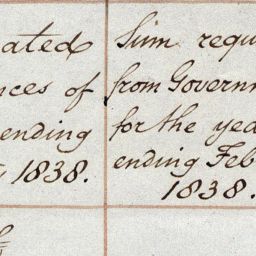 ated
nces of
ending
1838.
Sum requ
from Governm
for the yea
ending Feb
1838.